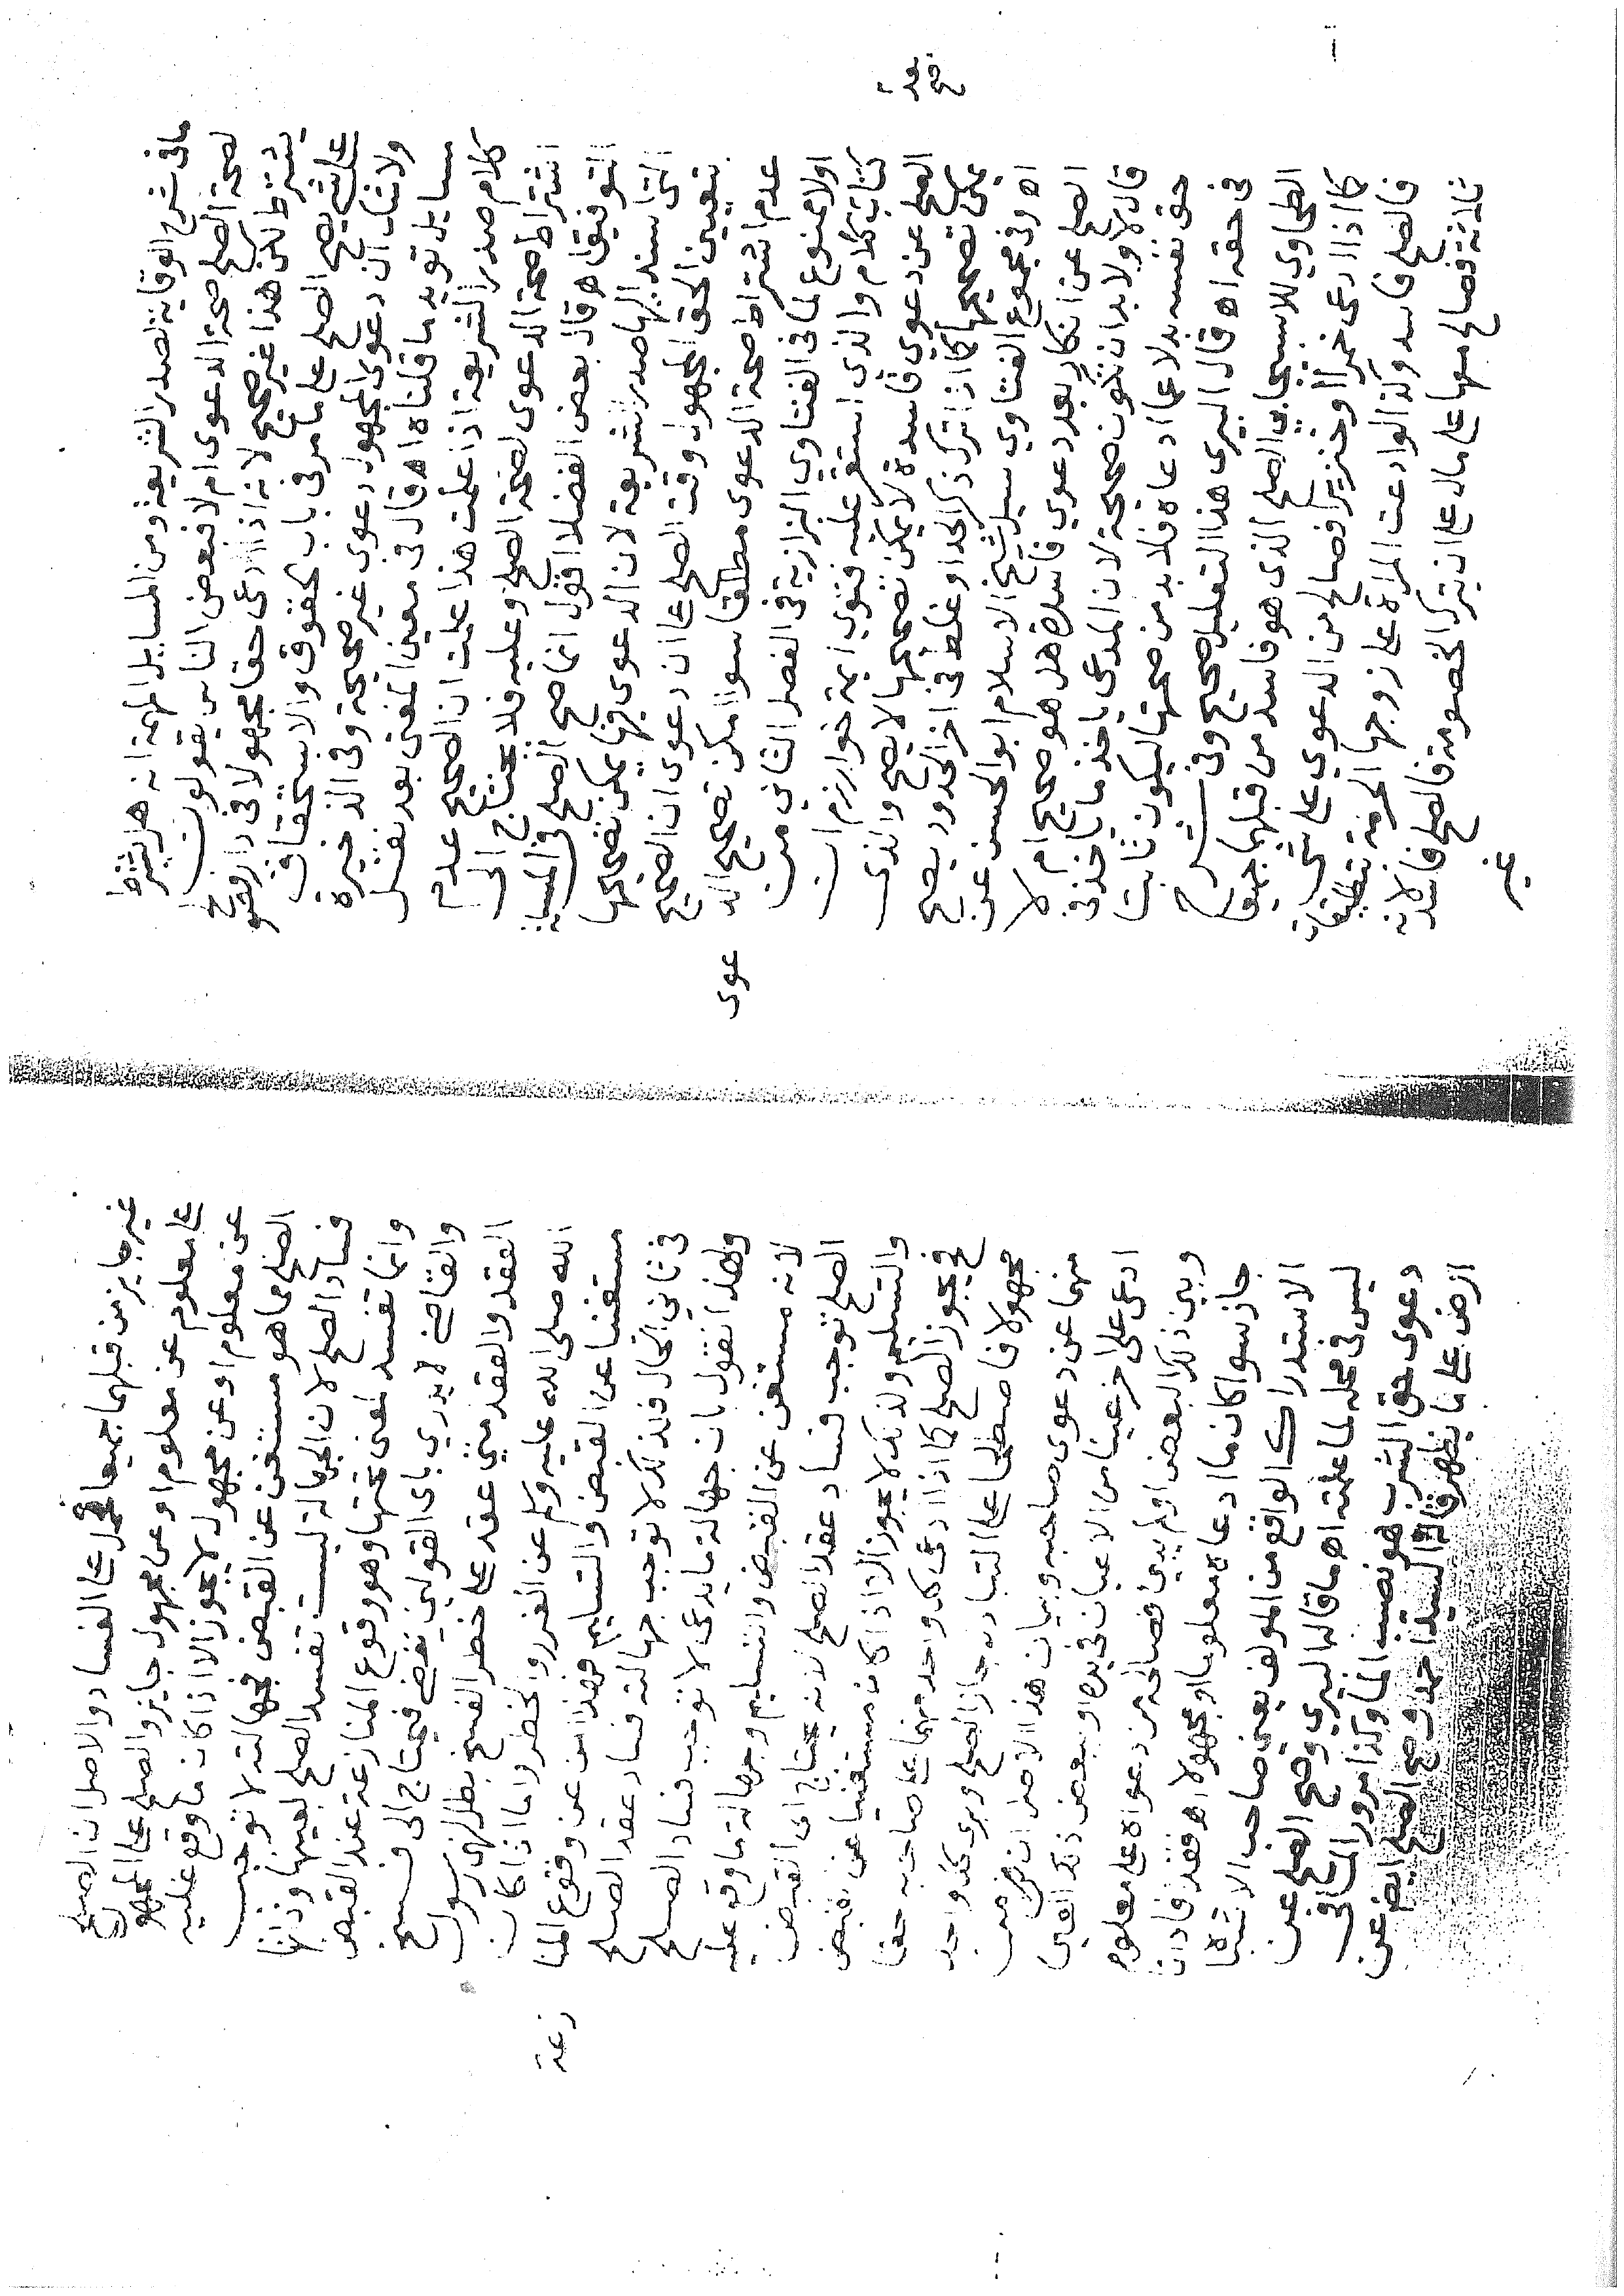 ما فى شرح الوقاية لصدر الشريعة ومن المسايل المهمة انه هل يشترط
لصحة الصلح صحة الدعوى ام لا فبعض الناس يقولون
يشترط لكن هذا غير صحيح لانه اذا ادعى حقا مجهولا فى دار فصو
على شى يصح الصلح على ما مر فى باب الحقوق والاستحقاق
ولا شك ان دعوى المجهول دعوى غير صحيحة وفى الذخيرة
مسايل تويد ما قلناه اه قال فى معين المفتى بعد نقل
كلام صدر الشريعة اذا علمت هذا علمت ان الصحيح عدم
اشتراط صحة الدعوى لصحة الصلح وعليه فلا يحتاج الى
التوفيق اه وقال بعض الفضلا اقول انما صح الصلح فى المسيلة
التى استند اليها صدر الشريعة لان الدعوى فيها يمكن تصحيحها
بتعيين الحق المجهول وقت الصلح على ان دعوى ان الصحيح
عدم اشتراط صحة الدعوى مطلقا سوا امكن تصحيح الد
عوى
اولا ممنوع لما فى الفتاوي البزازية فى الفصل الثانى من
كتاب كلام والذى استقر عليه فتوي ايمة خوارزم ان
الصلح عن دعوي فاسدة لا يمكن تصحيحها لا يصح والذى
يمكن تصحيحها كما اذا ترك ذكر الحد او غلط فى اخر الحدود يصح
اه وفى مجموع الفتاوي سيل شيخ الاسلام ابو الحسن عن
الصلح عن انكار بعد دعوي فاسدة هل هو صحيح ام لا
قال لا ولا بد ان تكون صحيحة لان المدعى ياخذ ما ياخذ فى
حق نفسه بدلا عما ادعاه فلا بد من صحتها ليكون ثابت
فى حقه اه قال البيرى هذا التعليل صحيح وفى شرح
الطحاوي للاسبيجابي الصلح الذى هو فاسد من قبلهما جميعا
كما اذا ادعى خمرا او خنزيرا فصالح من الدعوي على شى
فالصلح فاسد وكذا لو ادعت المراة على زوجها الحرمة بتطليقات
ثلاثة فصالح معها على مال على ان يترك الخصومة فالصلح فاسد لانه
غير
غير جايز من قبلهما جميعا فحمل على الفساد والاصل ان الصلح
على معلوم عن معلوم او عن مجهول جايز والصلح على المجهو
عن معلوم او عن مجهول لا يجوز الا اذا كان ما وقع عليه
الصلح مما هو مستغنى عن القبض فجهالته لا توجب
فساد الصلح لان الجهالة ليست تفسد الصلح لعينها وذاتها
وانما تفسد لمعنى تحتها وهو وقوع المنازعة عند القبض
والقاضى لا يدري باى القولين يقضى فيحتاج الى فسخ
العقد والعقد متى عقد على خطر الفسخ بطل لنهى رسول
الله صلى الله عليه وسلم عن الغرر والخطر واما اذا كان
مستغنيا عن القبض والتسليم فهذا امن عن وقوع المنا
زعة
فى ثانى الحال فلذلك لا توجب جهالته فساد عقد الصلح
ولهذا نقول بان جهالة ما يدعى لا توجب فساد الصلح
لانه مستغن عن القبض والتسليم وجهالة ما وقع عليه
الصلح توجب فساد عقد الصلح لانه يحتاج الى القبض
والتسليم ولذلك لا يجوز الا اذا كان مستغنيا عن قبض
فيجوز الصلح كما اذا ادعى كل واحد منهما على صاحبه حقا
مجهولا فاصطلحا على التبارء جاز الصلح وبرى كل واحد
منهما عن دعوى صاحبه وبيان هذا الاصل ان من
ادعى على اخر عينا من الاعيان فى يده او ببعض ذلك العين
وبين ذلك البعض او لم يبين فصالحه من دعواه على معلوم
جاز سوا كان ما ادعاه معلوما او مجهولا اه فقد فاد ان
الاستدراك الواقع من المولف يعنى صاحب الاشباه
ليس فى محله لما علمته اه ما قاله البيرى وصح الصلح عن
دعوى حق الشرب هو نصيب الما وكذا مرور الما فى
ارض على ما يظهر قاله السيد احمد وصح الصلح ايضا عن